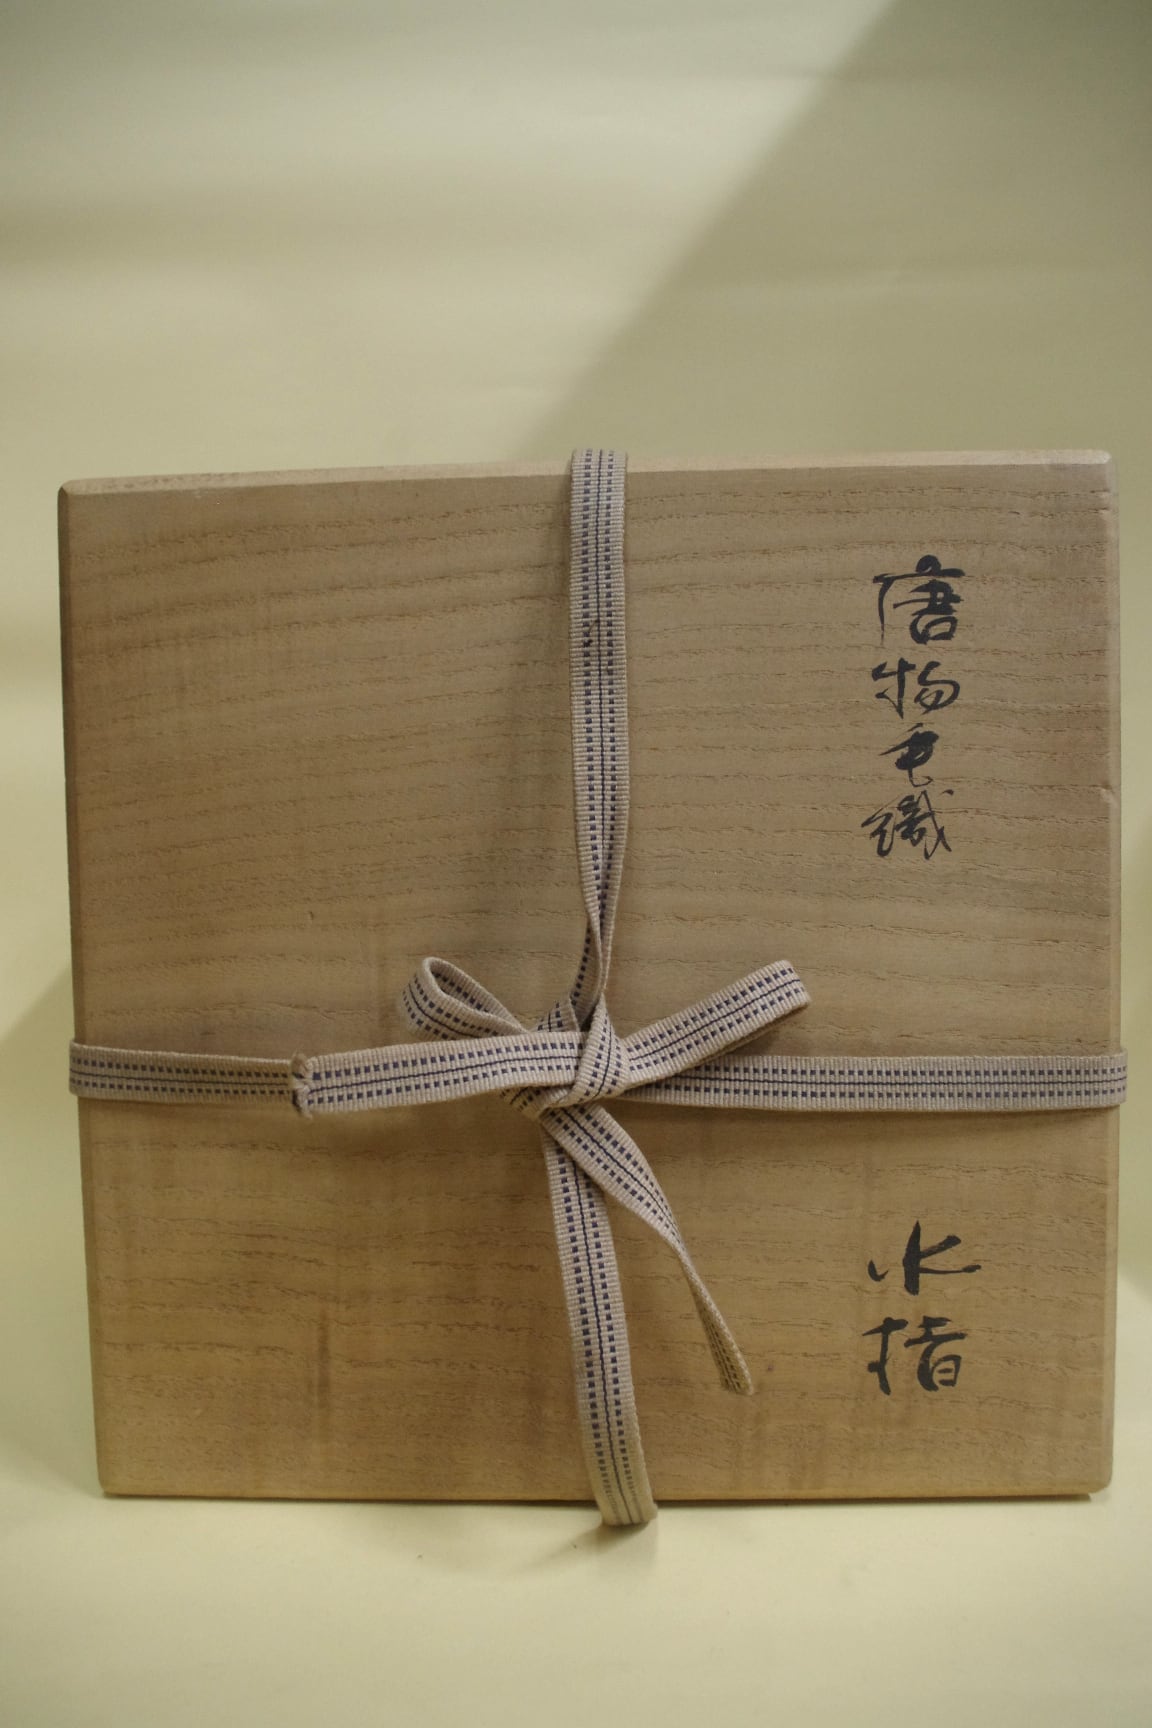 唐物毛織
水指